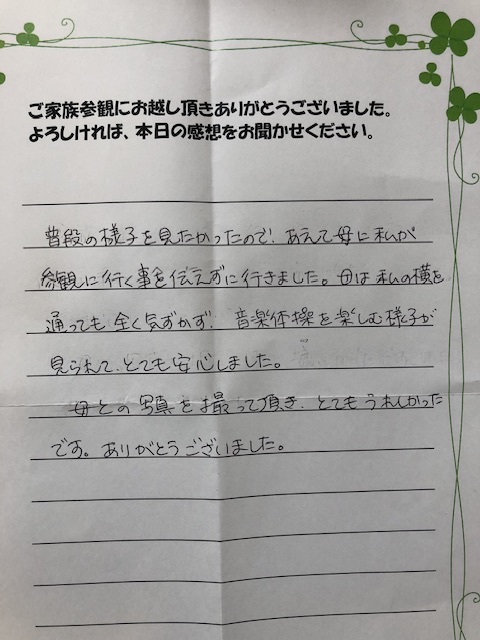 ご家族参観にお越し頂きありがとうございました。
よろしければ、本日の感想をお聞かせください。
普段の様子を見たかったので、あえて母に私が
参観に行く事を伝えずに行きました。母は私の横を
通っても全く気ずかず、音楽体操を楽しむ様子が
見られて、とても安心しました。
母との写真を撮って頂き、とてもうれしかった
です。ありがとうございました。